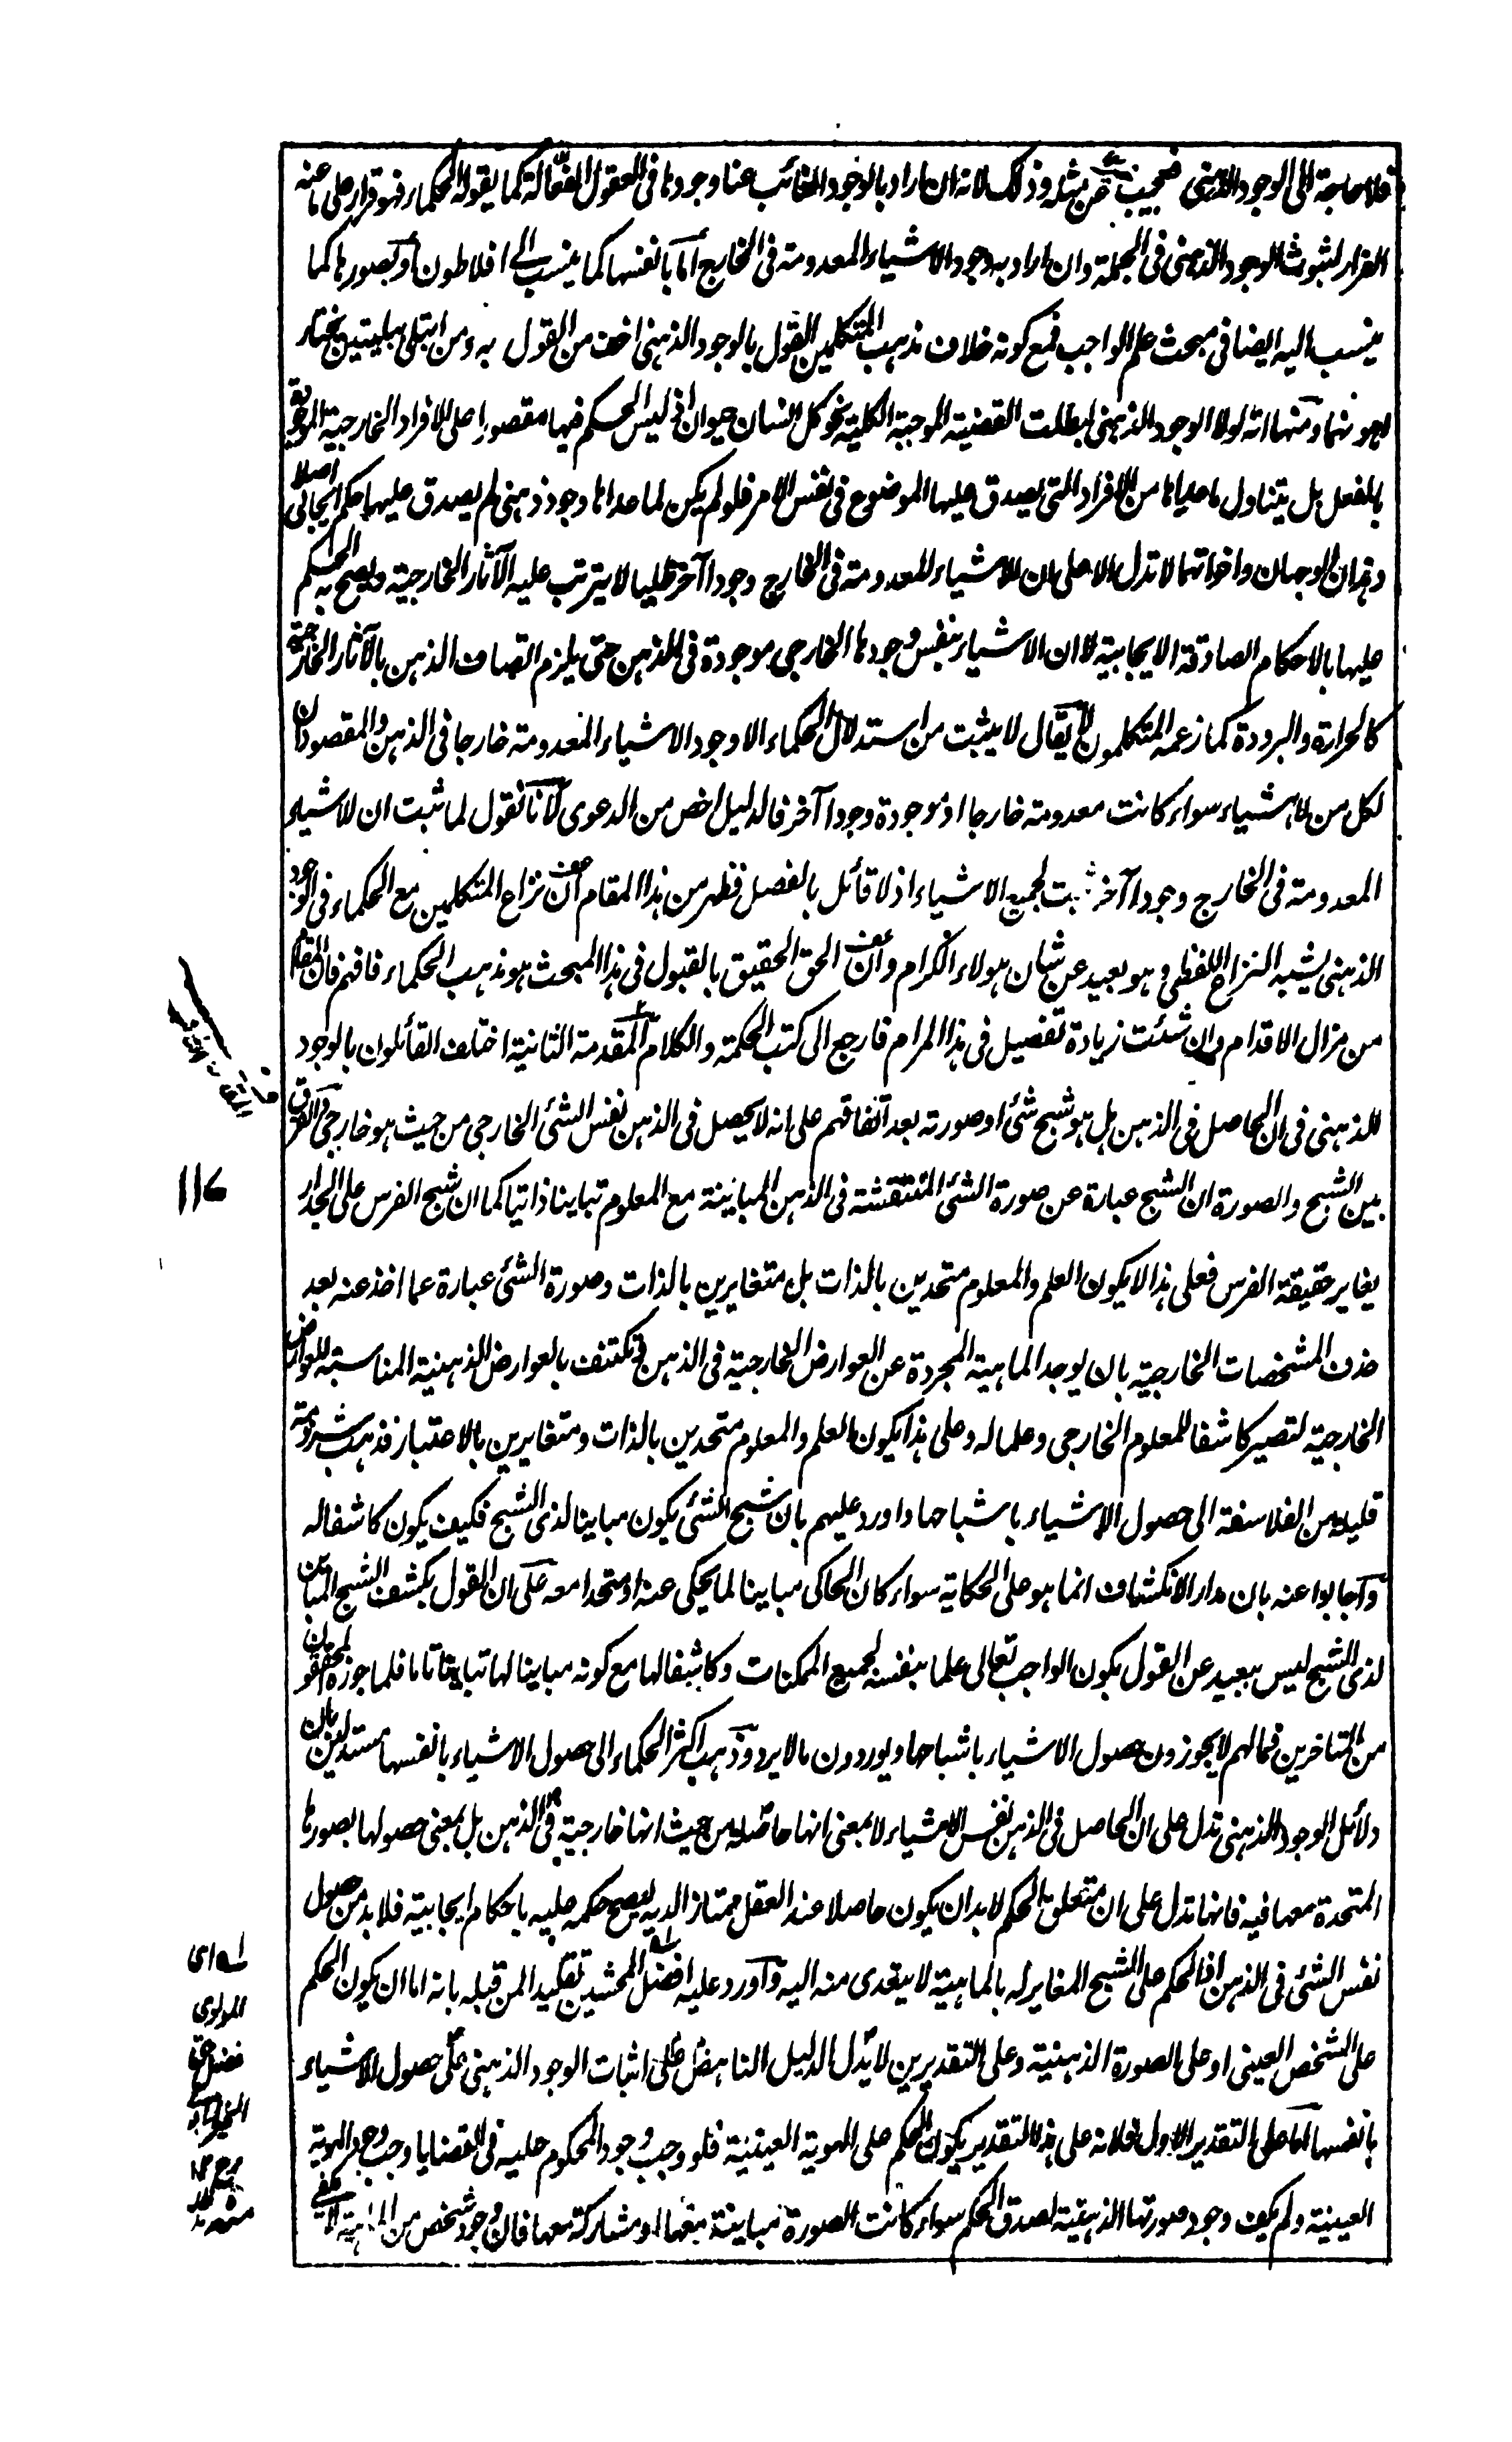 فلا حاجة الى الوجود الذهنى فعجيب عن مثله وذلك لانه ان اراد بالوجود الغائب عنا وجودها فى العقول الفعّالة كما يقوله الحكماء فهو قرار على ما عنه
الفرار لثبوت الوجود الذهنى فى الجملة وان اراد به وجود الاشياء المعدومة فى الخارج اما بانفسها كما ينسب الى افلاطون او بصورها كما
ينسب اليه ايضا فى مبحث علم الواجب فمع كونه خلاف مذهب المتكلمين القول بالوجود الذهنى اخف من القول به ومن ابتلى ببليتين يختار
اهونهما ومنها انه لولا الوجود الذهنى لبطلت القضية الموجبة الكلية نحو كل انسان حيوان اذ ليس الحكم فيها مقصورا على الافراد الخارجية الموجودة
بالفعل بل يتناول ما عداها من الافراد التى يصدق عليها الموضوع فى نفس الامر فلو لم يكن لما عداها وجود ذهنى لم يصدق عليها حكم ايجابى اصلا
وهذان الوجهان واخواتهما لا تدل الا على ان للاشياء المعدومة فى الخارج وجودا آخر ظليا لا يترتب عليه الآثار الخارجية ويصح به الحكم
عليها بالاحكام الصادقة الايجابية لا ان الاشياء بنفس وجودها الخارجى موجودة فى الذهن حتى يلزم اتصاف الذهن بالآثار الخارجية
كالحرارة والبرودة كما زعمه المتكلمون لا يقال لا يثبت من استدلال الحكماء الا وجود الاشياء المعدومة خارجا فى الذهن والمقصود ان
لكل من الاشياء سواء كانت معدومة خارجا او موجودة وجودا آخر فالدليل اخص من الدعوى لانا نقول لما ثبت ان للاشياء
المعدومة فى الخارج وجودا آخر ثبت لجميع الاشياء اذ لا قائل بالفصل فظهر من هذا المقام ان نزاع المتكلمين مع الحكماء فى الوجود
الذهنى يشبه النزاع اللفظى وهو بعيد عن شان هولاء الكرام وان الحق الحقيق بالقبول فى هذا المبحث هو مذهب الحكماء فافهم فان المقام
من مزال الاقدام وان شئت زيادة تفصيل فى هذا المرام فارجع الى كتب الحكمة والكلام المقدمة الثانية اختلف القائلون بالوجود
الذهنى فى ان الحاصل فى الذهن بل هو شبح شئ او صورته بعد اتفاقهم على انه لا يحصل فى الذهن نفس الشئ الخارجى من حيث هو خارجى والفرق
بين الشبح والصورة ان الشبح عبارة عن صورة الشئ المنتقشة فى الذهن المباينة مع المعلوم تباينا ذاتيا كما ان شبح الفرس على الجدار
يغاير حقيقة الفرس فعلى هذا لا يكون العلم والمعلوم متحدين بالذات بل متغايرين بالذات وصورة الشئ عبارة عما اخذ عنه بعد
حذف المشخصات الخارجية بان يوجد الماهية المجردة عن العوارض الخارجية فى الذهن وتكتنف بالعوارض الذهنية المناسبة للعوارض
الخارجية لتصير كاشفا للمعلوم الخارجى وعلما له وعلى هذا يكون العلم والمعلوم متحدين بالذات ومتغايرين بالاعتبار فذهب شرذمة
قليلة من الفلاسفة الى حصول الاشياء باشباحها واورد عليهم بان شبح الشئ يكون مباينا لذى الشبح فكيف يكون كاشفا له
واجابوا عنه بان مدار الانكشاف انما هو على الحكاية سواء كان الحاكى مباينا لما يحكى عنه او متحدا معه على ان القول بكشف الشبح المباين
لذى الشبح ليس ببعيد عن القول بكون الواجب تعالى علما بنفسه لجميع الممكنات وكاشفا لها مع كونه مباينا لها تباينا تاما فلما جوزه المحققون
من المتاخرين فما لهم لا يجوزون حصول الاشياء باشباحها ويوردون ما لا يرد وذهب اكثر الحكماء الى حصول الاشياء بانفسها مستدلين بان
دلائل الوجود الذهنى تدل على ان الحاصل فى الذهن نفس الاشياء لا بمعنى انها حاصلة من حيث انها خارجية فى الذهن بل بمعنى حصولها بصورها
المتحدة معها فيه فانها تدل على ان متعلق الحكم لا بد ان يكون حاصلا عند العقل ممتازا لديه ليصح حكمه عليه باحكام ايجابية فلا بد من حصول
نفس الشئ فى الذهن اذ الحكم على الشبح المغاير له بالماهية لا يتعدى منه اليه واورد عليه افضل المحشين تقليدا لمن قبله بانه اما ان يكون الحكم
على الشخص العينى او على الصورة الذهنية وعلى التقديرين لا يدل الدليل الناهض على اثبات الوجود الذهنى على حصول الاشياء
بانفسها اما على التقدير الاول فلانه على هذا التقدير يكون الحكم على الهوية العينية فلو وجب وجود المحكوم عليه فى القضايا وجب وجود الهوية
العينية ولم يكف وجود صورتها الذهنية لصدق الحكم سواء كانت الصورة مباينة معها او مشاركة معها فان وجود شخص من الماهية لا يكفى
۱۱۷
له اى
المولوى
فضل حق